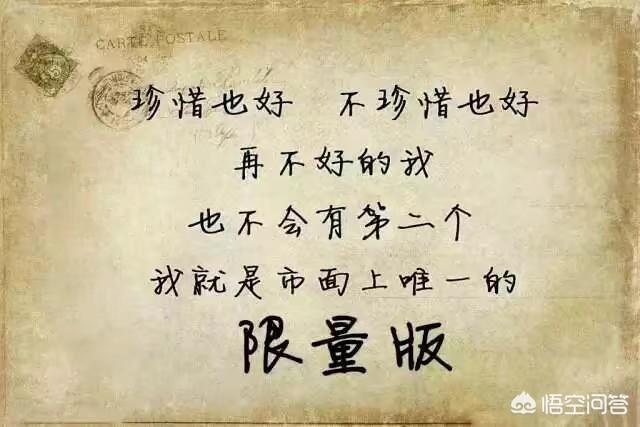 CARTE POSTALE
珍惜也好 不珍惜也好
再不好的我
也不会有第二个
我就是市面上唯一的
限量版
悟空问答